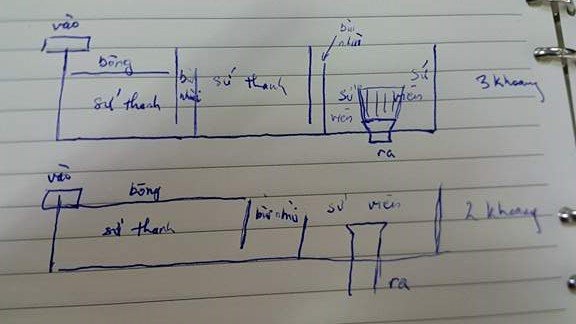 vào
bông
sứ thanh
bùi nhùi
sứ thanh
bùi nhùi
sứ viên
sứ viên
ra
3 khoang
vào
bông
sứ thanh
bùi nhùi
sứ viên
ra
2 khoang